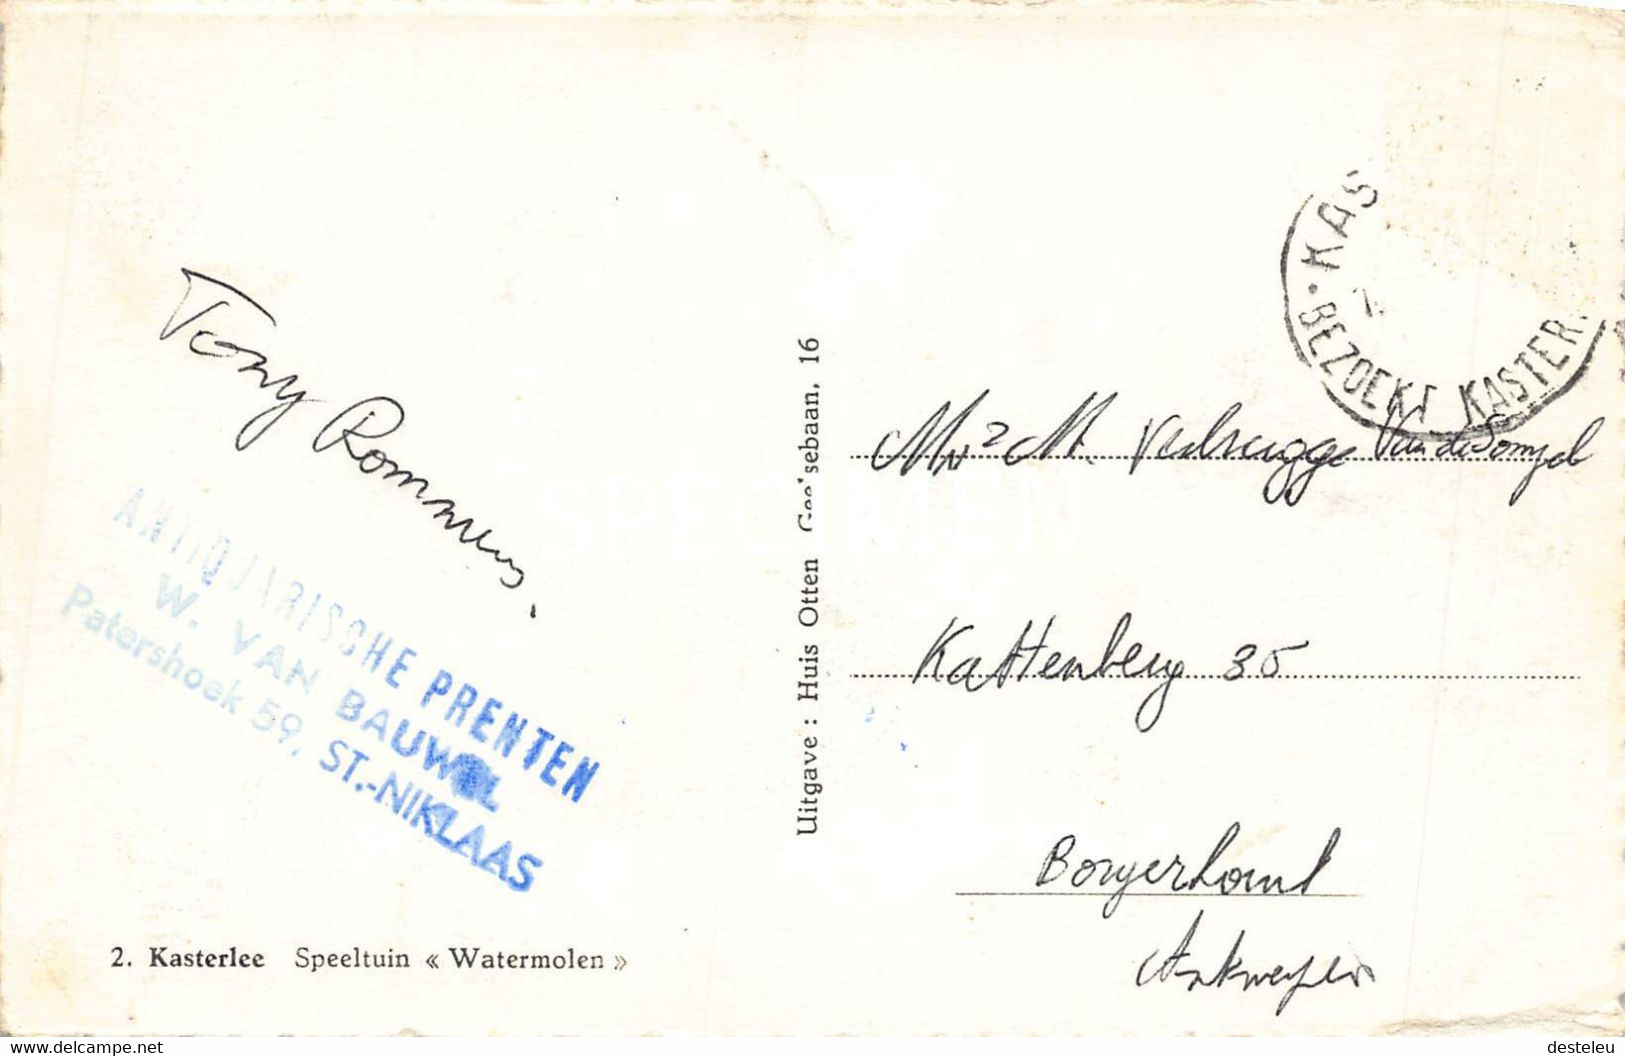 Tony Rommens.
ANTIQUARISCHE PRENTEN
W. VAN BAUWEL
Patershoek 59, ST.-NIKLAAS
2. Kasterlee Speeltuin « Watermolen »
Uitgave : Huis Otten sebaan, 16
KAS
BEZOEKT KASTER
M. Verbrugge Van de
Kattenberg 35
Borgerhout
Antwerpen
SPECIMEN
delcampe.net
desteleu